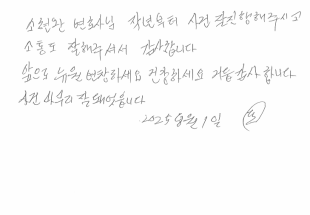 변호사님 작년부터 사건 잘 진행해주시고
소통도 잘해주셔서 감사합니다
앞으로 뉴원 번창하세요 건창하세요 거듭감사합니다
사건 마무리 잘 돼었읍니다
2025 8월 1일